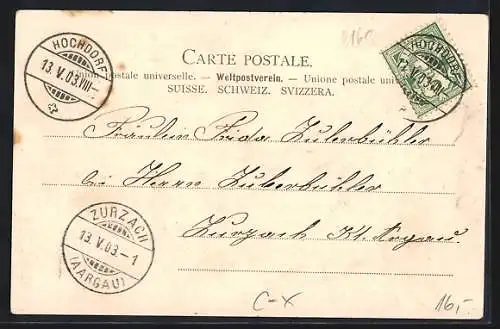 8160
HOCHDORF
13.V.03.VIII-
CARTE POSTALE.
Union postale universelle. — Weltpostverein. — Unione postale
SUISSE. SCHWEIZ. SVIZZERA.
HOCHDORF
13.V.03.VIII
Fräulein Frida Zuberbühler
bei Herrn Zuberbühler
Zurzach Kt. Aargau.
ZURZACH
13.V.03.-1
(AARGAU)
C-X
16,-